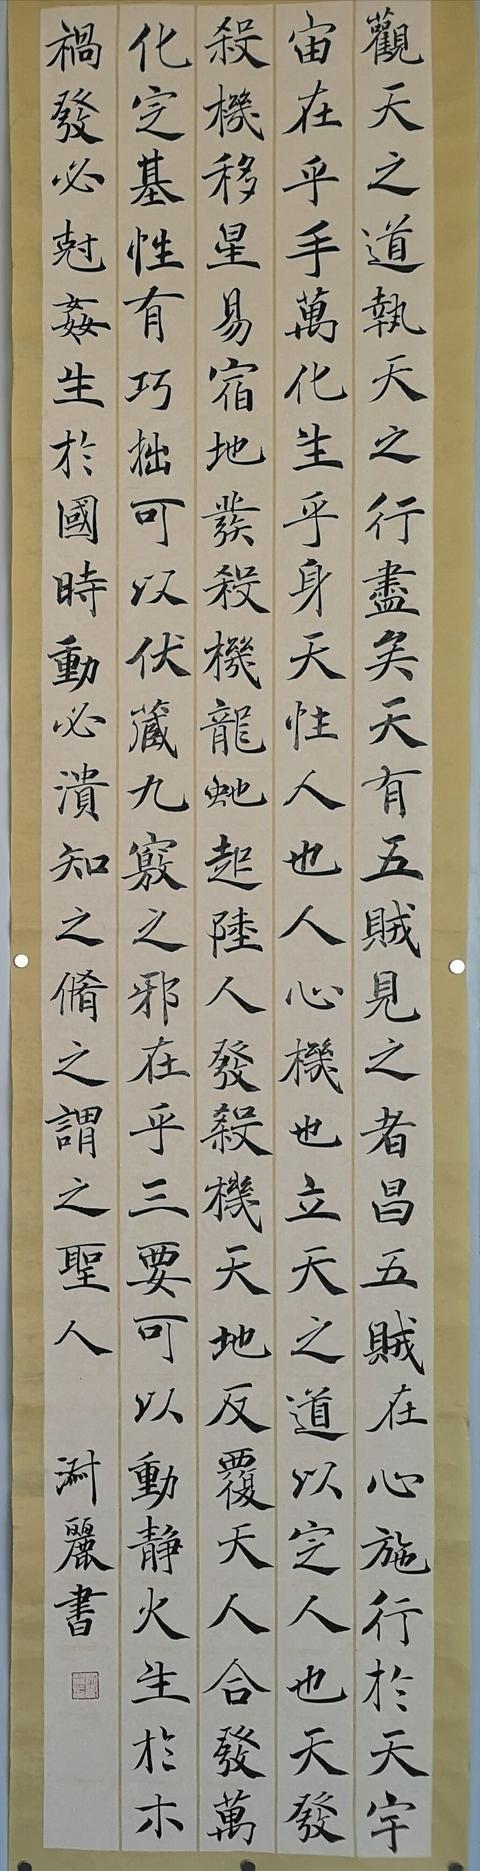 觀天之道執天之行盡矣天有五賊見之者昌五賊在心施行於天宇
宙在乎手萬化生乎身天性人也人心機也立天之道以定人也天發
殺機移星易宿地發殺機龍虵起陸人發殺機天地反覆天人合發萬
化定基性有巧拙可以伏藏九竅之邪在乎三要可以動靜火生於木
禍發必剋姦生於國時動必潰知之脩之謂之聖人
麗書